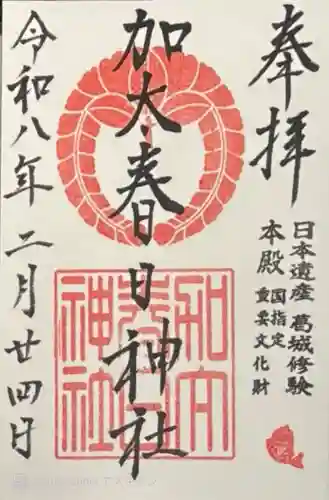 奉拝
日本遺産 葛城修験
本殿 国指定 重要文化財
加太春日神社
令和八年 二月廿四日